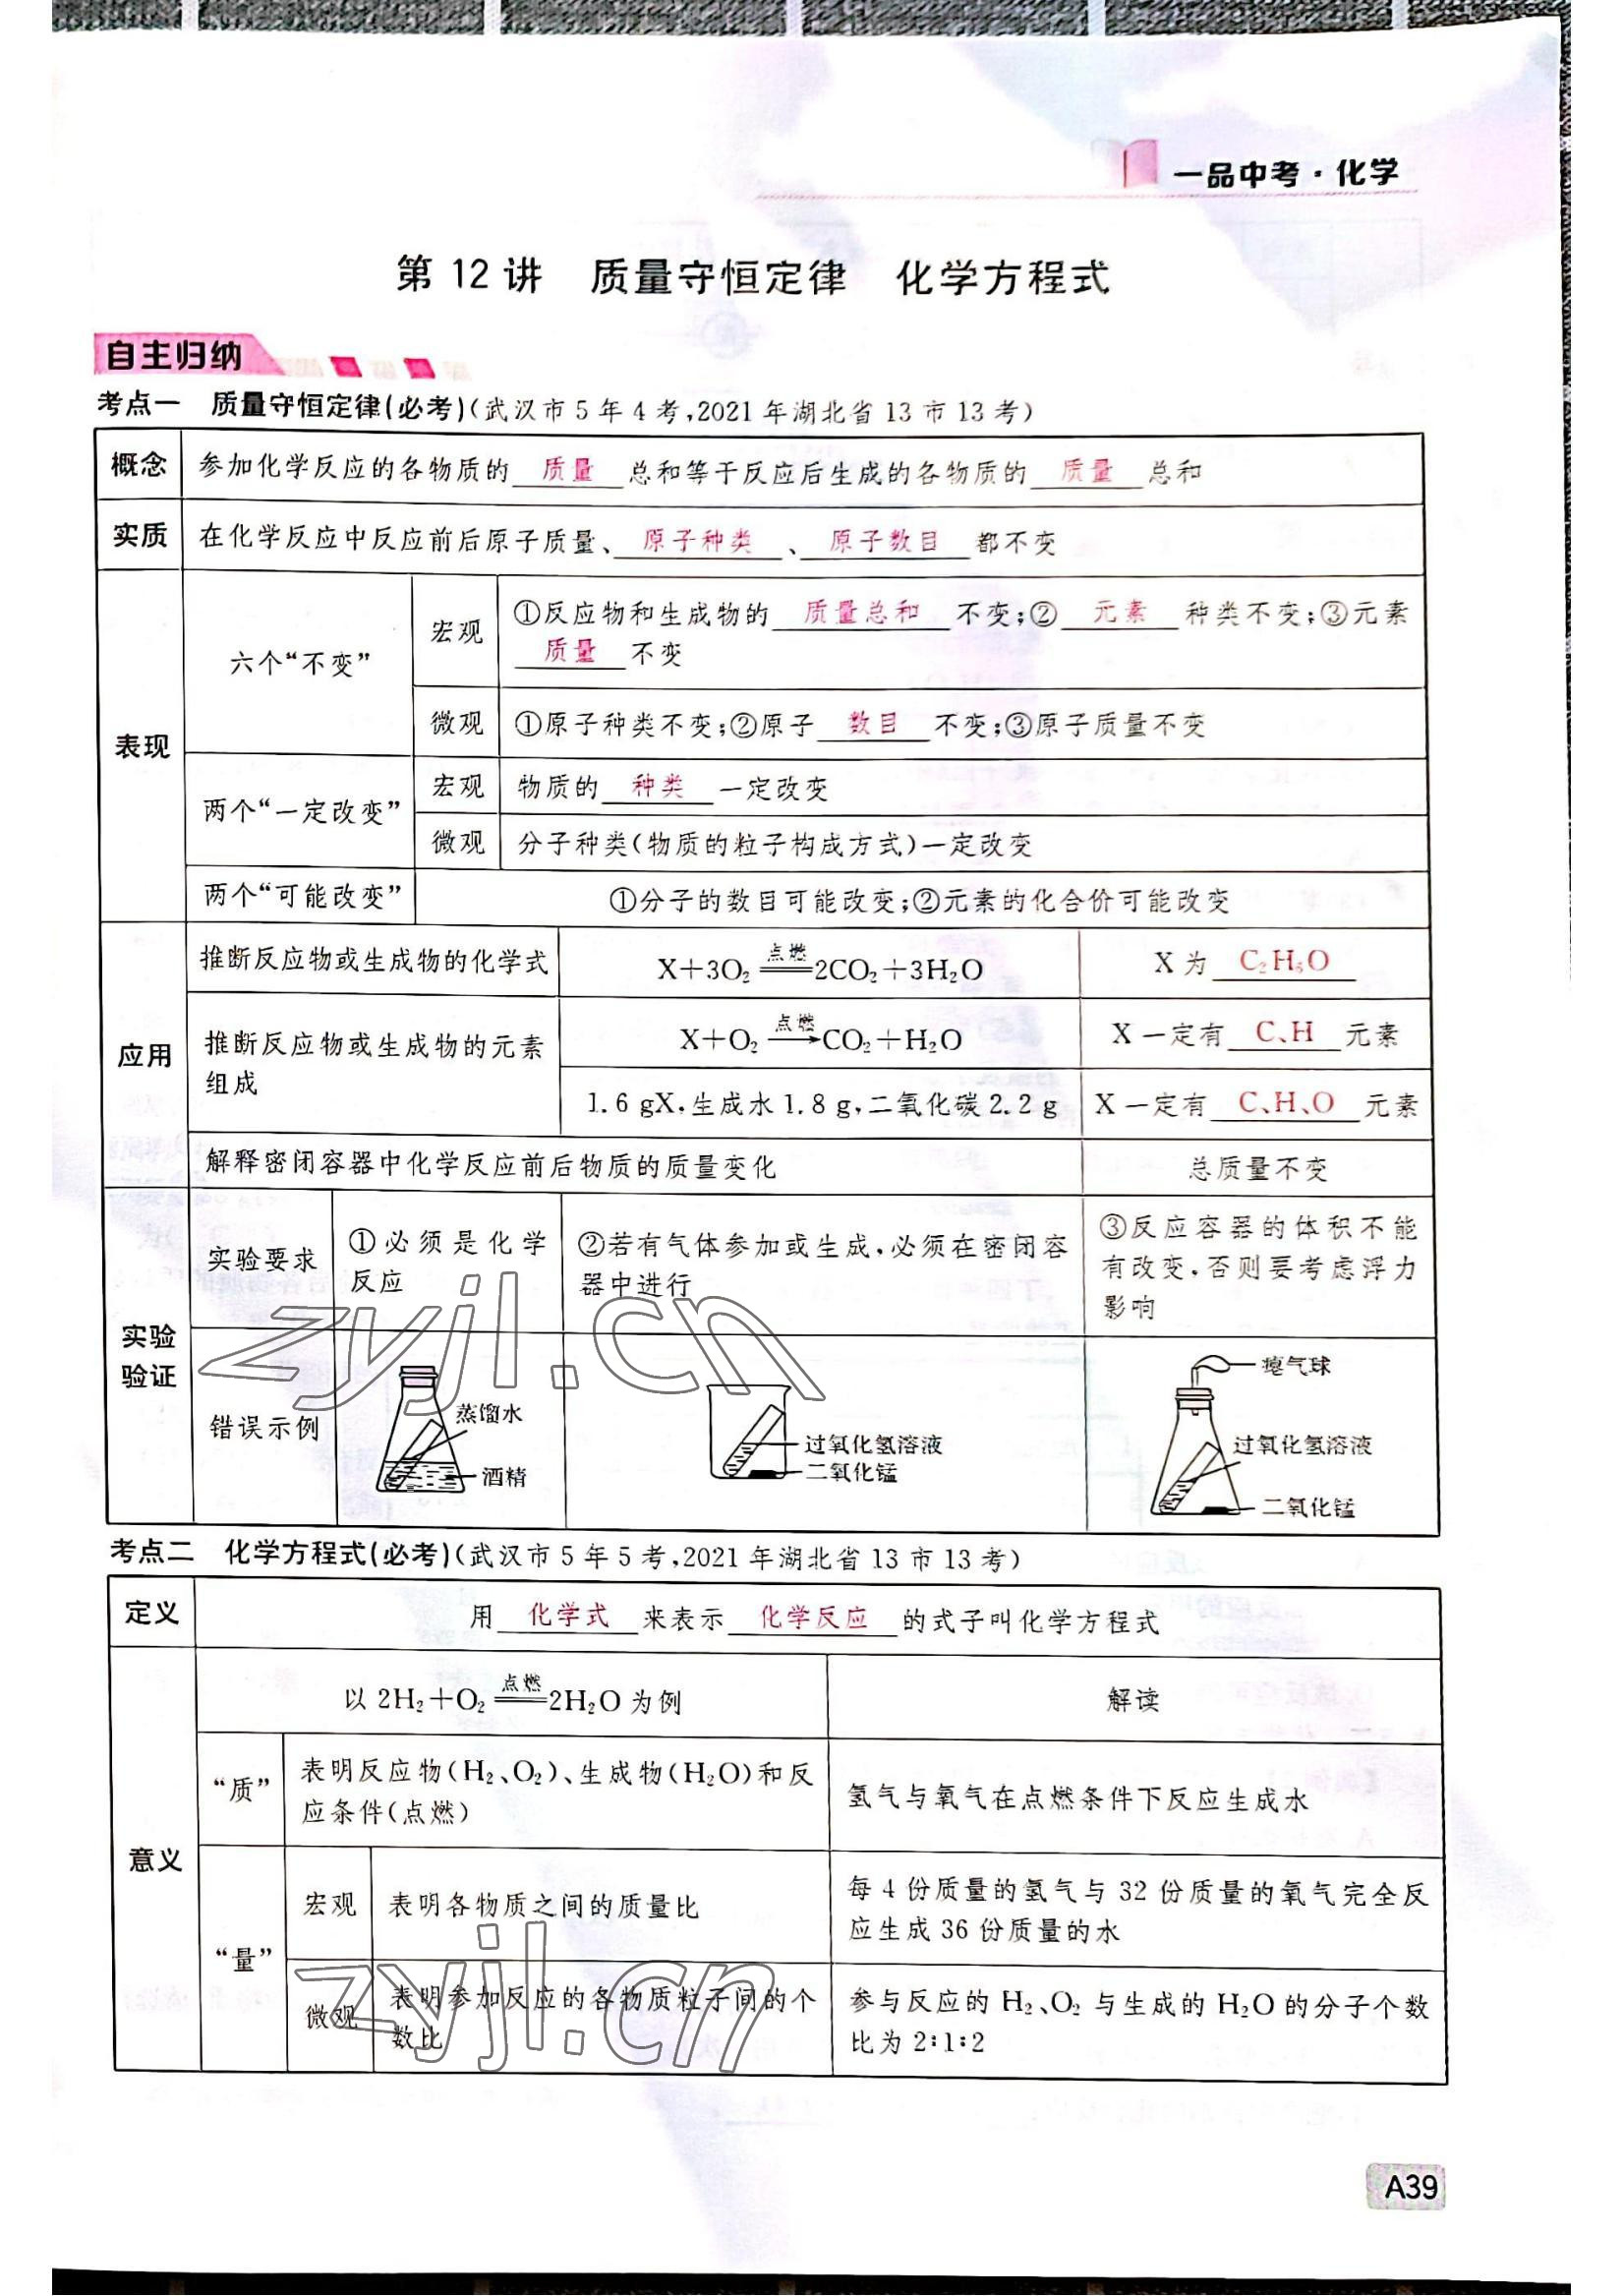 一品中考·化学
第12讲 质量守恒定律 化学方程式
自主归纳
考点一 质量守恒定律(必考)(武汉市5年4考,2021年湖北省13市13考)
概念
参加化学反应的各物质的 质量 总和等于反应后生成的各物质的 质量 总和
实质
在化学反应中反应前后原子质量、 原子种类 、 原子数目 都不变
表现
六个“不变”
宏观
①反应物和生成物的 质量总和 不变;② 元素 种类不变;③元素
质量 不变
微观
①原子种类不变;②原子 数目 不变;③原子质量不变
两个“一定改变”
宏观
物质的 种类 一定改变
微观
分子种类(物质的粒子构成方式)一定改变
两个“可能改变”
①分子的数目可能改变;②元素的化合价可能改变
应用
推断反应物或生成物的化学式
X+3O₂ 点燃 2CO₂+3H₂O
X为 C₂H₆O
推断反应物或生成物的元素
组成
X+O₂ 点燃→ CO₂+H₂O
X一定有 C、H 元素
1.6 gX,生成水1.8 g,二氧化碳2.2 g
X一定有 C、H、O 元素
解释密闭容器中化学反应前后物质的质量变化
总质量不变
实验
验证
实验要求
①必须是化学
反应
②若有气体参加或生成,必须在密闭容
器中进行
③反应容器的体积不能
有改变,否则要考虑浮力
影响
错误示例
蒸馏水
酒精
过氧化氢溶液
二氧化锰
瘪气球
过氧化氢溶液
二氧化锰
zyjl.cn
考点二 化学方程式(必考)(武汉市5年5考,2021年湖北省13市13考)
定义
用 化学式 来表示 化学反应 的式子叫化学方程式
意义
以2H₂+O₂ 点燃 2H₂O为例
解读
“质”
表明反应物(H₂、O₂)、生成物(H₂O)和反
应条件(点燃)
氢气与氧气在点燃条件下反应生成水
“量”
宏观
表明各物质之间的质量比
每4份质量的氢气与32份质量的氧气完全反
应生成36份质量的水
微观
表明参加反应的各物质粒子间的个
数比
参与反应的H₂、O₂与生成的H₂O的分子个数
比为2:1:2
zyjl.cn
A39